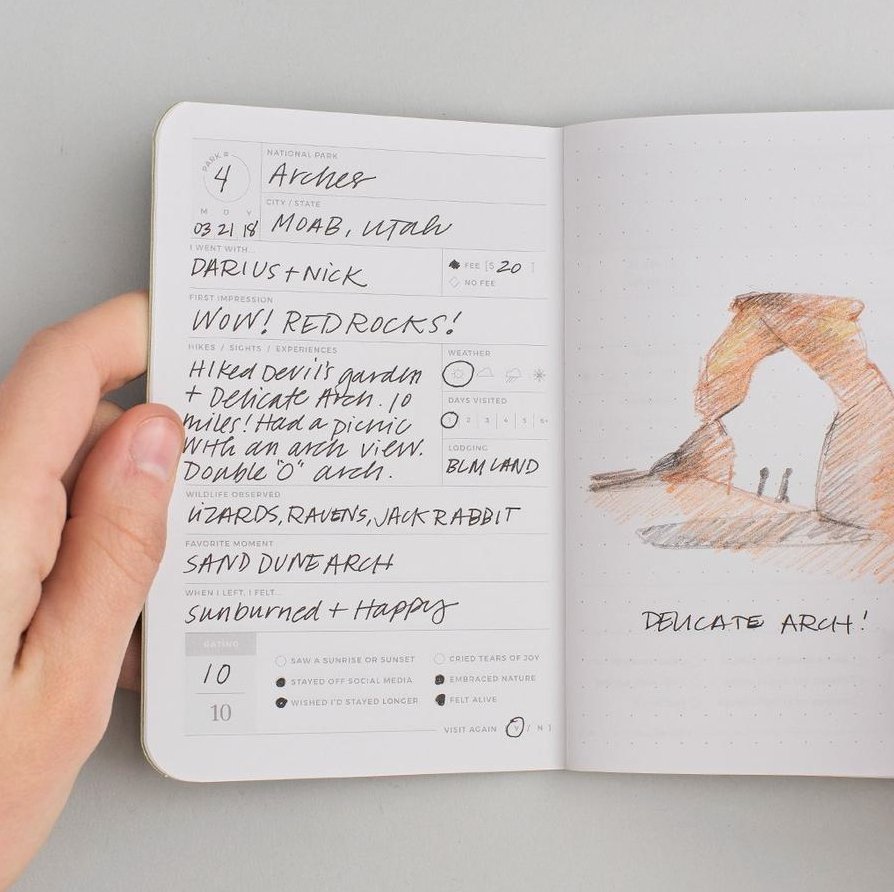 PARK #
4
M D Y
03 21 18
NATIONAL PARK
Arches
CITY / STATE
MOAB, UTah
I WENT WITH...
DARIUS + NICK
FEE [$ 20 ]
NO FEE
FIRST IMPRESSION
WOW! RED ROCKS!
HIKES / SIGHTS / EXPERIENCES
Hiked Devil's garden
+ Delicate Arch. 10
miles! Had a picnic
with an arch view.
Double "O" arch.
WEATHER
DAYS VISITED
1 2 3 4 5 6+
LODGING
BLM LAND
WILDLIFE OBSERVED
LIZARDS, RAVENS, JACK RABBIT
FAVORITE MOMENT
SAND DUNE ARCH
WHEN I LEFT, I FELT...
sunburned + Happy
RATING
10
10
SAW A SUNRISE OR SUNSET
STAYED OFF SOCIAL MEDIA
WISHED I'D STAYED LONGER
CRIED TEARS OF JOY
EMBRACED NATURE
FELT ALIVE
VISIT AGAIN [ Y / N ]
DELICATE ARCH!